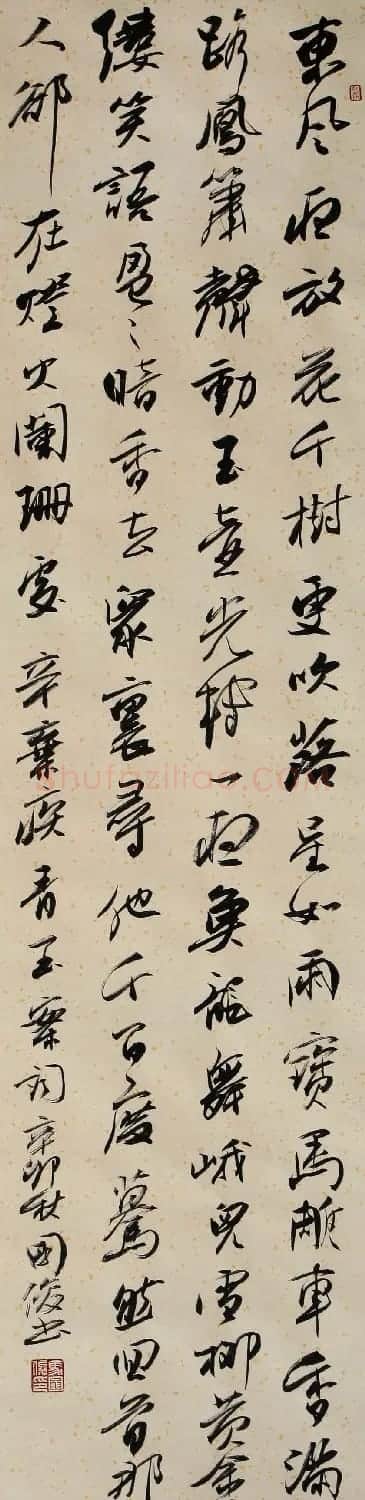 東風夜放花千樹更吹落星如雨寶馬雕車香滿
路鳳簫聲動玉壺光轉一夜魚龍舞峨兒雪柳黃金
縷笑語盈〻暗香去眾裏尋他千百度驀然回首那
人卻在燈火闌珊處 辛棄疾青玉案詞 辛卯秋國俊書
shufaziliao.com